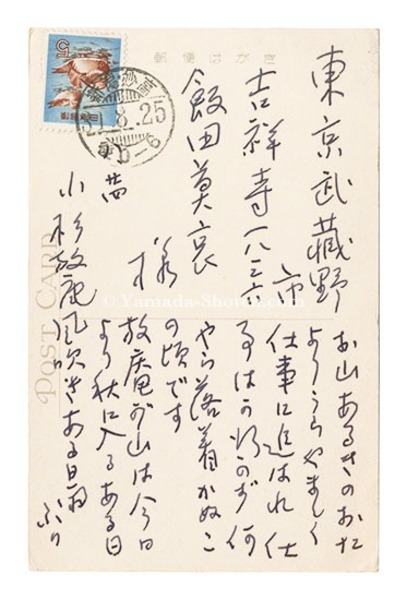 郵便はがき
東京武蔵野
市
吉祥寺一八三六
飯田莫哀
様
お山あるきのおた
よりうらやましく
仕事に追はれ仕
何
やら落着かぬこ
の頃です
放庵が山は今日
より秋に入るある日
風吹きある日雨
ふり
小杉放庵
POST CARD
5
8.25
© Yamada-Shoten.com